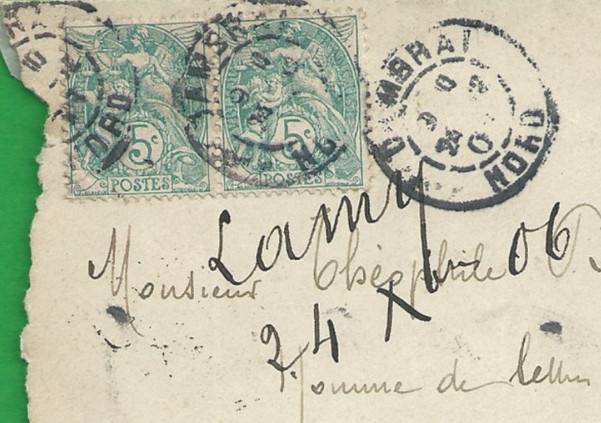 5c 5c
POSTES POSTES
CAMBRAI
NORD
Lamy
Monsieur Théophile
24 X 06
Homme de lettres